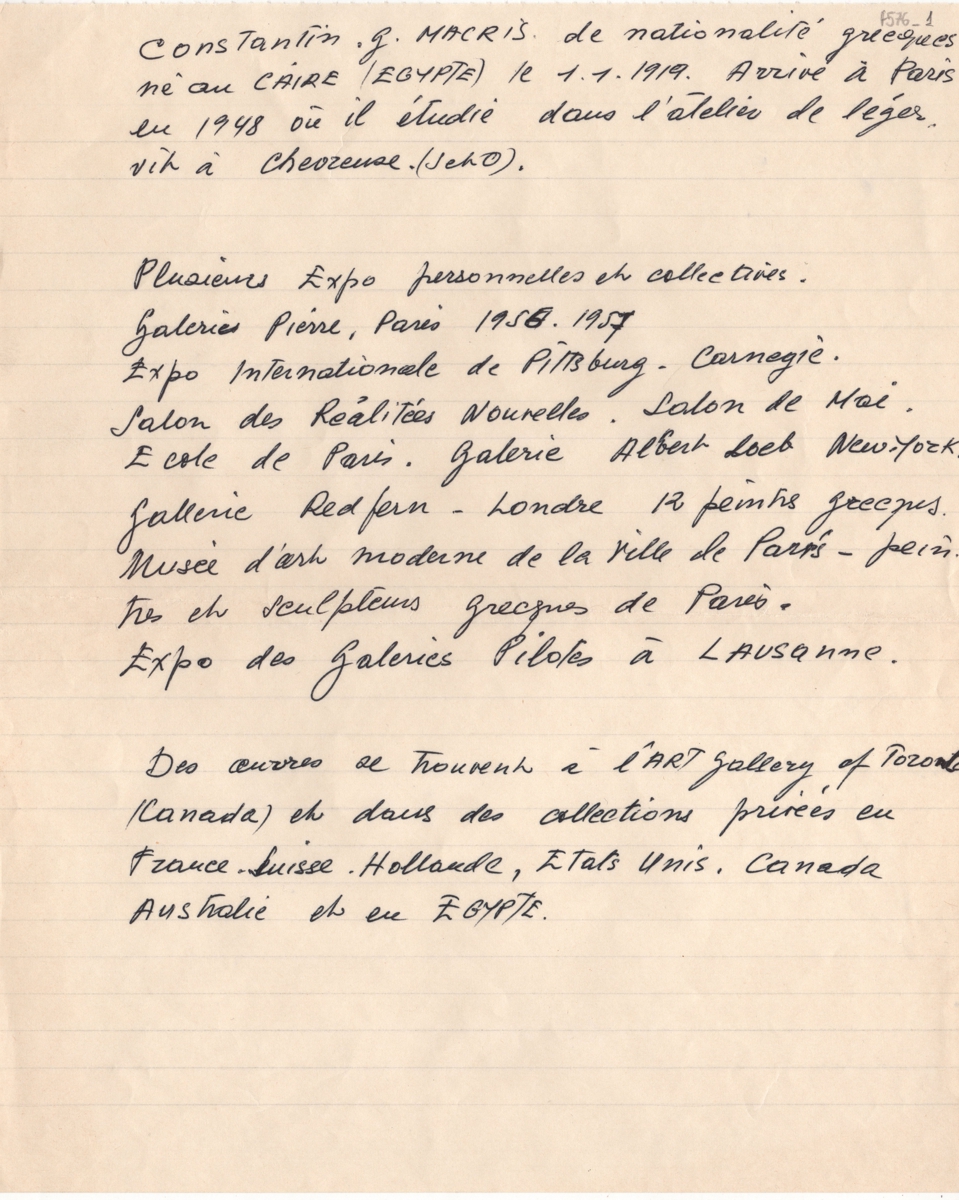 P576_1
Constantin . G. MACRIS. de nationalité grecques
né au CAIRE (EGYPTE) le 1.1.1919. Arrivé à Paris
en 1948 où il étudie dans l'atelier de léger.
vit à Chevreuse. (SetO).
Plusieurs Expo personnelles et collectives.
Galeries Pierre, Paris 1956. 1957
Expo Internationale de Pittsburg - Carnegie.
Salon des Réalitées Nouvelles. Salon de Mai.
Ecole de Paris. Galerie Albert Loeb New-York.
Gallerie Redfern - Londre 12 peintrs grecqus.
Musée d'art moderne de la Ville de Paris - pein-
tres et sculpteurs grecques de Paris.
Expo des Galeries Pilotes à LAUSANNE.
Des œuvres se trouvent à l'ART Gallery of Toronto
(Canada) et dans des collections privées en
France. Suisse. Hollande, Etats Unis. Canada
Australie et en EGYPTE.